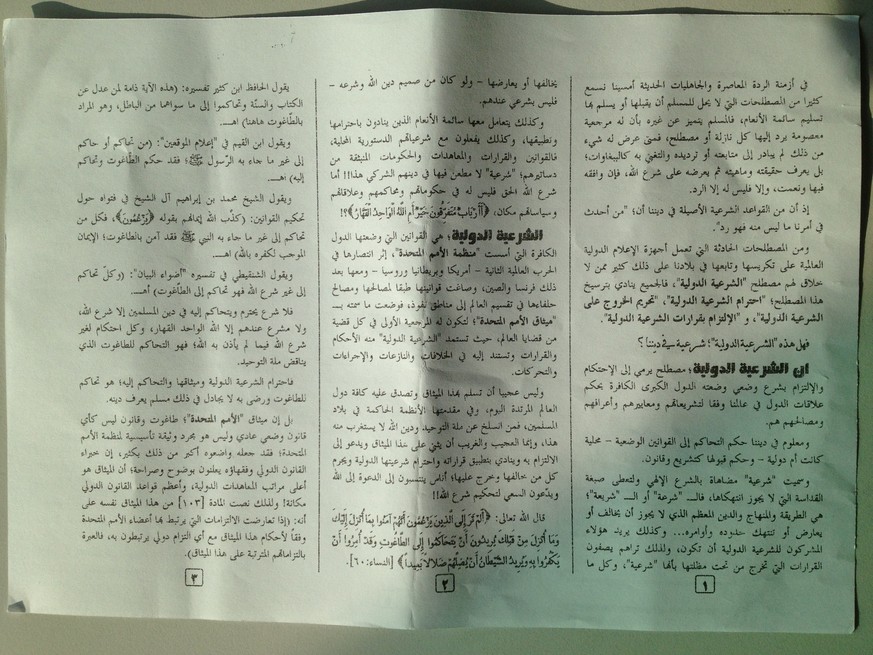 في أزمنة الردة المعاصرة والجاهليات الحديثة أمسينا نسمع
كثيرا من المصطلحات التي لا يحل للمسلم أن يقبلها أو يسلم بها
تسليم سائمة الأنعام، فالمسلم يتميز عن غيره بأن له مرجعية
معصومة يرد إليها كل نازلة أو مصطلح، فمتى عرض له شيء
من ذلك لم يبادر إلى متابعته أو ترديده والتغني به كالببغاوات؛
بل يعرف حقيقته وماهيته ثم يعرضه على شرع الله، فإن وافقه
فبها ونعمت، وإلا فليس له إلا الرد.
إذ أن من القواعد الشرعية الأصيلة في ديننا أن؛ "من أحدث
في أمرنا ما ليس منه فهو رد".
ومن المصطلحات الحادثة التي تعمل أجهزة الإعلام الدولية
العالمية على تكريسها وتابعها في بلادنا على ذلك كثير ممن لا
خلاق لهم مصطلح "الشرعية الدولية"، فالجميع ينادي بترسيخ
هذا المصطلح؛ "احترام الشرعية الدولية"، "تحريم الخروج على
الشرعية الدولية"، و "الإلتزام بقرارات الشرعية الدولية".
فهل هذه "الشرعية الدولية"؛ شرعية في ديننا؟
ان الشرعية الدولية؛ مصطلح يرمي إلى الإحتكام
والإلتزام بشرع وضعي وضعته الدول الكبرى الكافرة يحكم
علاقات الدول في عالمنا وفقا لتشريعاتهم ومعاييرهم وأعرافهم
ومصالحهم هم.
ومعلوم في ديننا حكم التحاكم إلى القوانين الوضعية – محلية
كانت أم دولية – وحكم قبولها كتشريع وقانون.
وسميت "شرعية" مضاهاة بالشرع الإلهي ولتعطى صبغة
القداسة التي لا يجوز انتهاكها، فالـ "شرعة" أو الـ "شريعة"؛
هي الطريقة والمنهاج والدين المعظم الذي لا يجوز أن يخالف أو
يعارض أو تنتهك حدوده وأوامره... وكذلك يريد هؤلاء
المشركون للشرعية الدولية أن تكون، ولذلك تراهم يصفون
القرارات التي تخرج من تحت مظلتها بأنها "شرعية"، وكل ما
١
يخالفها أو يعارضها – ولو كان من صميم دين الله وشرعه –
فليس بشرعي عندهم.
وكذلك يتعامل معها سائمة الأنعام الذين ينادون باحترامها
وتطبيقها، وكذلك يفعلون مع شرعياتهم الدستورية المحلية،
فالقوانين والقرارات والمعاهدات والحكومات المنبثقة من
دساتيرهم؛ "شرعية" لا مطعن فيها في دينهم الشركي هذا!! أما
شرع الله الحق فليس له في حكوماتهم ومحاكمهم وعلاقاتهم
وسياساتهم مكان، ﴿أَأَرْبَابٌ مُتَفَرِّقُونَ خَيْرٌ أَمِ اللَّهُ الْوَاحِدُ الْقَهَّارُ﴾؟!
الشرعية الدولية، هي القوانين التي وضعتها الدول
الكافرة التي أسست "منظمة الأمم المتحدة"، إثر انتصارها في
الحرب العالمية الثانية – أمريكا وبريطانيا وروسيا – ومعها بعد
ذلك فرنسا والصين، وصاغت قوانينها طبقا لمصالحها ومصالح
حلفاءها في تقسيم العالم إلى مناطق نفوذ، فوضعت ما سمته بـ
"ميثاق الأمم المتحدة"؛ لتكون له المرجعية الأولى في كل قضية
من قضايا العالم، حيث تستمد "الشرعية الدولية" منه الأحكام
والقرارات وتستند إليه في الخلافات والنازعات والإجراءات
والتحركات.
وليس عجيبا أن تسلم بهذا الميثاق وتصدق عليه كافة دول
العالم المرتدة اليوم، وفي مقدمتها الأنظمة الحاكمة في بلاد
المسلمين، فمن انسلخ عن ملة التوحيد ودين الله لا يستغرب منه
هذا، وإنما العجيب والغريب أن يثني على هذا الميثاق ويدعو إلى
الالتزام به وينادي بتطبيق قراراته واحترام شرعيتها الدولية ويجرم
كل من خالفها وخرج عليها؛ أناس ينتسبون إلى الدعوة إلى الله
ويدّعون السعي لتحكيم شرع الله!!
قال الله تعالى: ﴿أَلَمْ تَرَ إِلَى الَّذِينَ يَزْعُمُونَ أَنَّهُمْ آمَنُوا بِمَا أُنْزِلَ إِلَيْكَ
وَمَا أُنْزِلَ مِنْ قَبْلِكَ يُرِيدُونَ أَنْ يَتَحَاكَمُوا إِلَى الطَّاغُوتِ وَقَدْ أُمِرُوا أَنْ
يَكْفُرُوا بِهِ وَيُرِيدُ الشَّيْطَانُ أَنْ يُضِلَّهُمْ ضَلَالًا بَعِيداً﴾ [النساء: ٦٠].
٢
يقول الحافظ ابن كثير تفسيره: (هذه الآية ذامة لمن عدل عن
الكتاب والسنّة وتحاكموا إلى ما سواهما من الباطل، وهو المراد
بالطّاغوت هاهنا) اهـ.
ويقول ابن القيم في "إعلام الموقعين": (من تحاكم أو حاكم
إلى غير ما جاء به الرّسول ﷺ؛ فقد حكم الطّاغوت وتحاكم
إليه) اهـ.
ويقول الشيخ محمد بن إبراهيم آل الشيخ في فتواه حول
تحكيم القوانين: (كذّب الله إيمانهم بقوله ﴿يَزْعُمُونَ﴾، فكل من
تحاكم إلى غير ما جاء به النبي ﷺ فقد آمن بالطاغوت؛ الإيمان
الموجب لكفره بالله) اهـ.
ويقول الشنقيطي في تفسيره "أضواء البيان": (وكلّ تحاكم
إلى غير شرع الله فهو تحاكم إلى الطّاغوت) أهـ.
فلا شرع يحترم ويتحاكم إليه في دين المسلمين إلا شرع الله،
ولا مشرع عندهم إلا الله الواحد القهار، وكل احتكام لغير
شرع الله فيما لم يأذن به الله؛ فهو التحاكم للطاغوت الذي
يناقض ملة التوحيد.
فاحترام الشرعية الدولية وميثاقها والتحاكم إليه؛ هو تحاكم
للطاغوت ورضى به لا يجادل في ذلك مسلم يعرف دينه.
بل إن ميثاق "الأمم المتحدة" طاغوت وقانون ليس كأي
قانون وضعي عادي وليس هو بمجرد وثيقة تأسيسية لمنظمة الأمم
المتحدة؛ فقد جعله واضعوه أكبر من ذلك بكثير، إن خبراء
القانون الدولي وفقهاؤه يعلنون بوضوح وصراحة؛ أن الميثاق هو
أعلى مراتب المعاهدات الدولية، وأعظم قواعد القانون الدولي
مكانة! ولذلك نصت المادة [١٠٣] من هذا الميثاق نفسه على
أنه: (إذا تعارضت الالتزامات التي يرتبط بها أعضاء الأمم المتحدة
وفقاً لأحكام هذا الميثاق مع أي التزام دولي يرتبطون به، فالعبرة
بالتزاماتهم المترتبة على هذا الميثاق).
٣